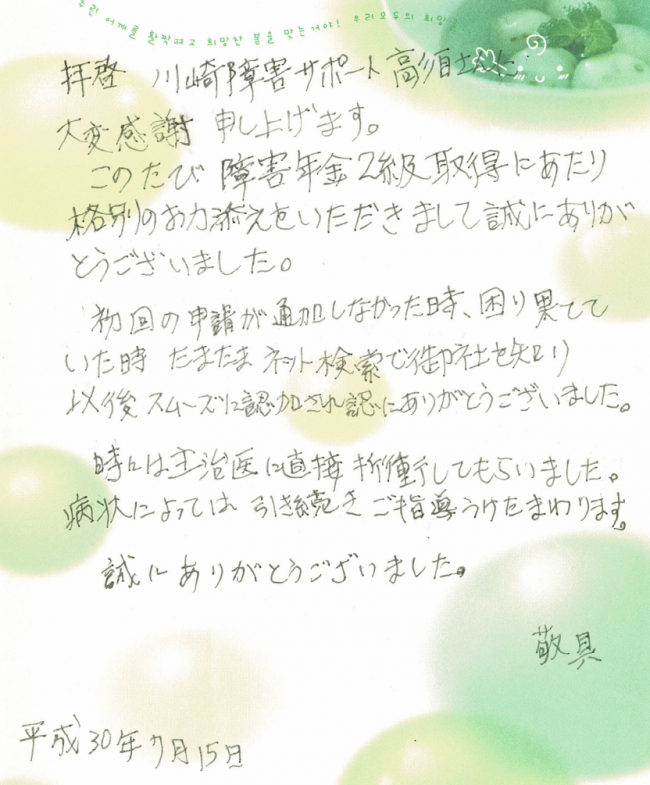 주린 어깨를 활짝펴고 희망찬 봄을 맞는거야! 우리모두의 희망을
拝啓 川崎障害サポート高須
大変感謝 申し上げます。
このたび 障害年金2級取得にあたり
格別のお力添えをいただきまして誠にありが
とうございました。
初回の申請が通加しなかった時、困り果てて
いた時 たまたま ネット検索で御社を知り
以後 スムーズに認加され誠にありがとうございました。
時には主治医に直接折衝してもらいました。
病状によっては 引き続き ご指導うけたまわります。
誠に ありがとうございました。
敬具
平成30年7月15日